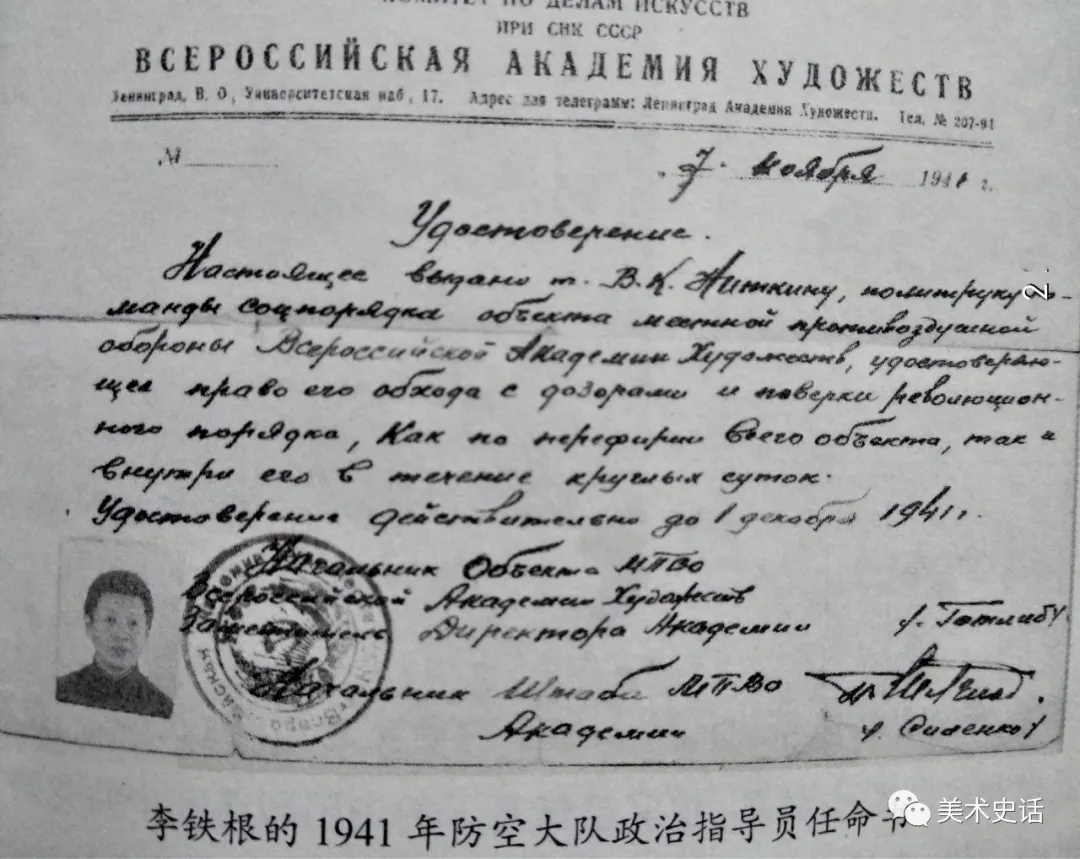 КОМИТЕТ ПО ДЕЛАМ ИСКУССТВ
ПРИ СНК СССР
ВСЕРОССИЙСКАЯ АКАДЕМИЯ ХУДОЖЕСТВ
Ленинград, В. О., Университетская наб., 17. Адрес для телеграмм: Ленинград Академия Художеств. Тел. № 207-91
№
7. ноября 1941 г.
Удостоверение.
Настоящее выдано т. В.К. Ниткину, политруку ко-
манды соцпорядка объекта местной противовоздушной
обороны Всероссийской Академии Художеств, удостоверяю-
щее право его обхода с дозорами и поверки революцион-
ного порядка, как по перефирии всего объекта, так и
внутри его в течение круглых суток.
Удостоверение действительно до 1 декабря 1941 г.
Начальник Объекта МПВО
Всероссийской Академии Художеств
Заместитель Директора Академии /. Готлиб/
Начальник Штаба МПВО
Академии
李铁根的 1941 年防空大队政治指导员任命书
美术史话